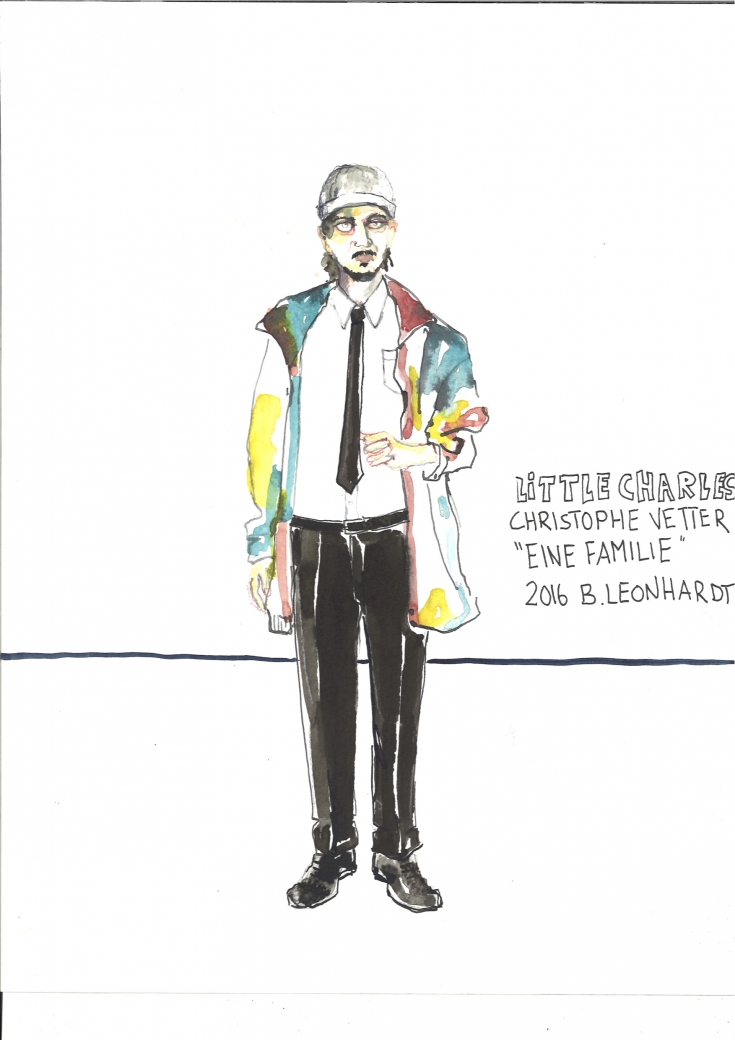 LiTTLE CHARLES
CHRISTOPHE VETTER
"EINE FAMILIE"
2016 B.LEONHARDT